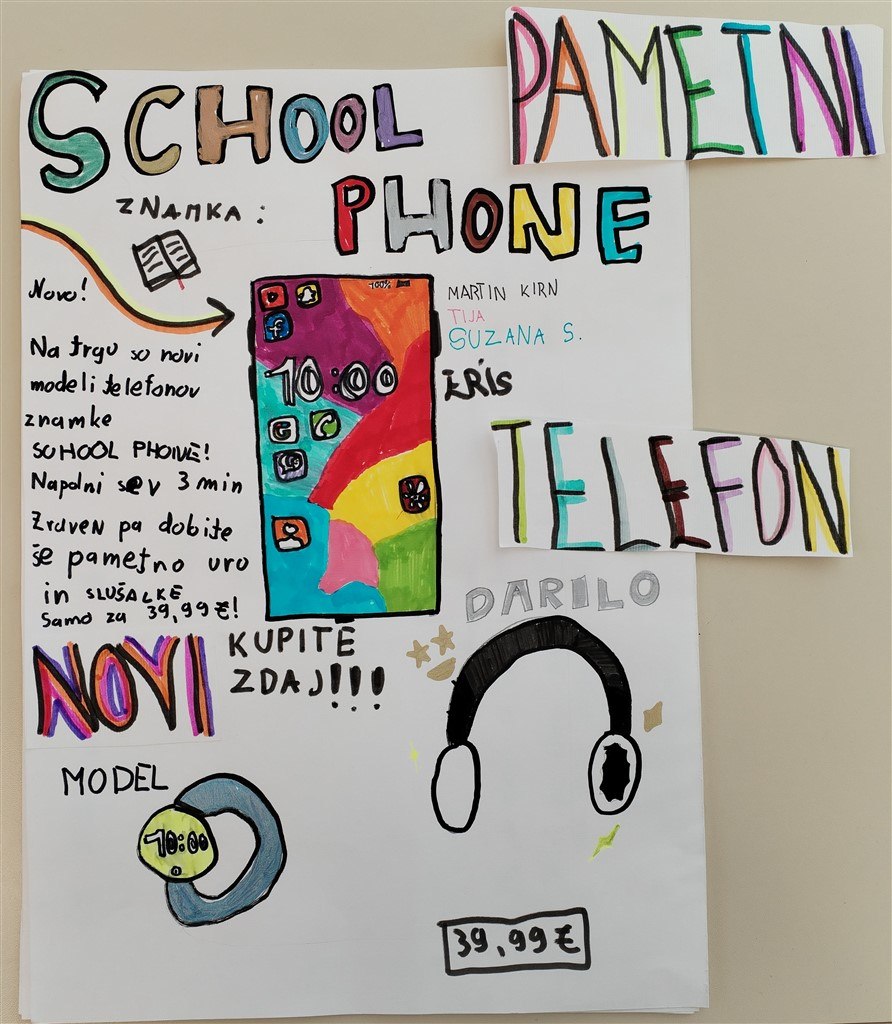 PAMETNI
SCHOOL
PHONE
ZNAMKA:
Novo!
100%
MARTIN KIRN
TIJA
SUZANA S.
ERIS
10:00
Na trgu so novi
modeli telefonov
znamke
SCHOOL PHONE!
Napolni se v 3 min
Zraven pa dobite
še pametno uro
in SLUŠALKE
samo za 39,99€!
TELEFON
DARILO
NOVI
KUPITE
ZDAJ!!!
MODEL
10:00
39,99€